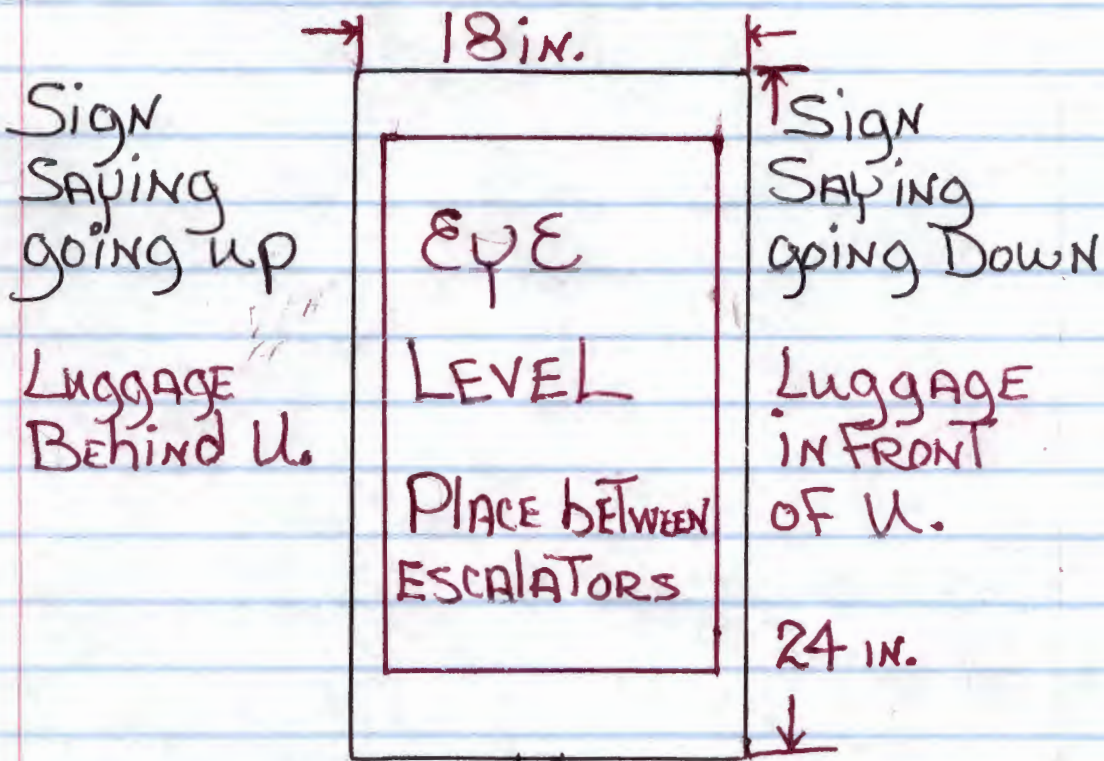 18 in.
Sign
Saying
going up
Luggage
Behind U.
EYE
LEVEL
Place between
Escalators
Sign
Saying
going Down
Luggage
in Front
of U.
24 in.